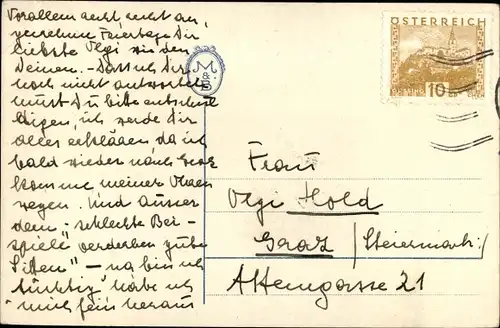 Vor allem recht, recht an,
genehme Feiertage Dir
liebste Olgi und den
Deinen. – Dass ich Dir
noch nicht antwortete
musst Du bitte entschul
digen, ich werde Dir
alles erklären, da ich
bald wieder nach Graz
komme meiner Ohren
wegen. Und ausser
dem: "schlechte Bei-
spiele verderben gute
Sitten" – na, bin ich
tüchtig habe ich
mich fein heraus
M & B
ÖSTERREICH
10
Frau
Olgi Hold
Graz / Steiermark /
Attemsgasse 21